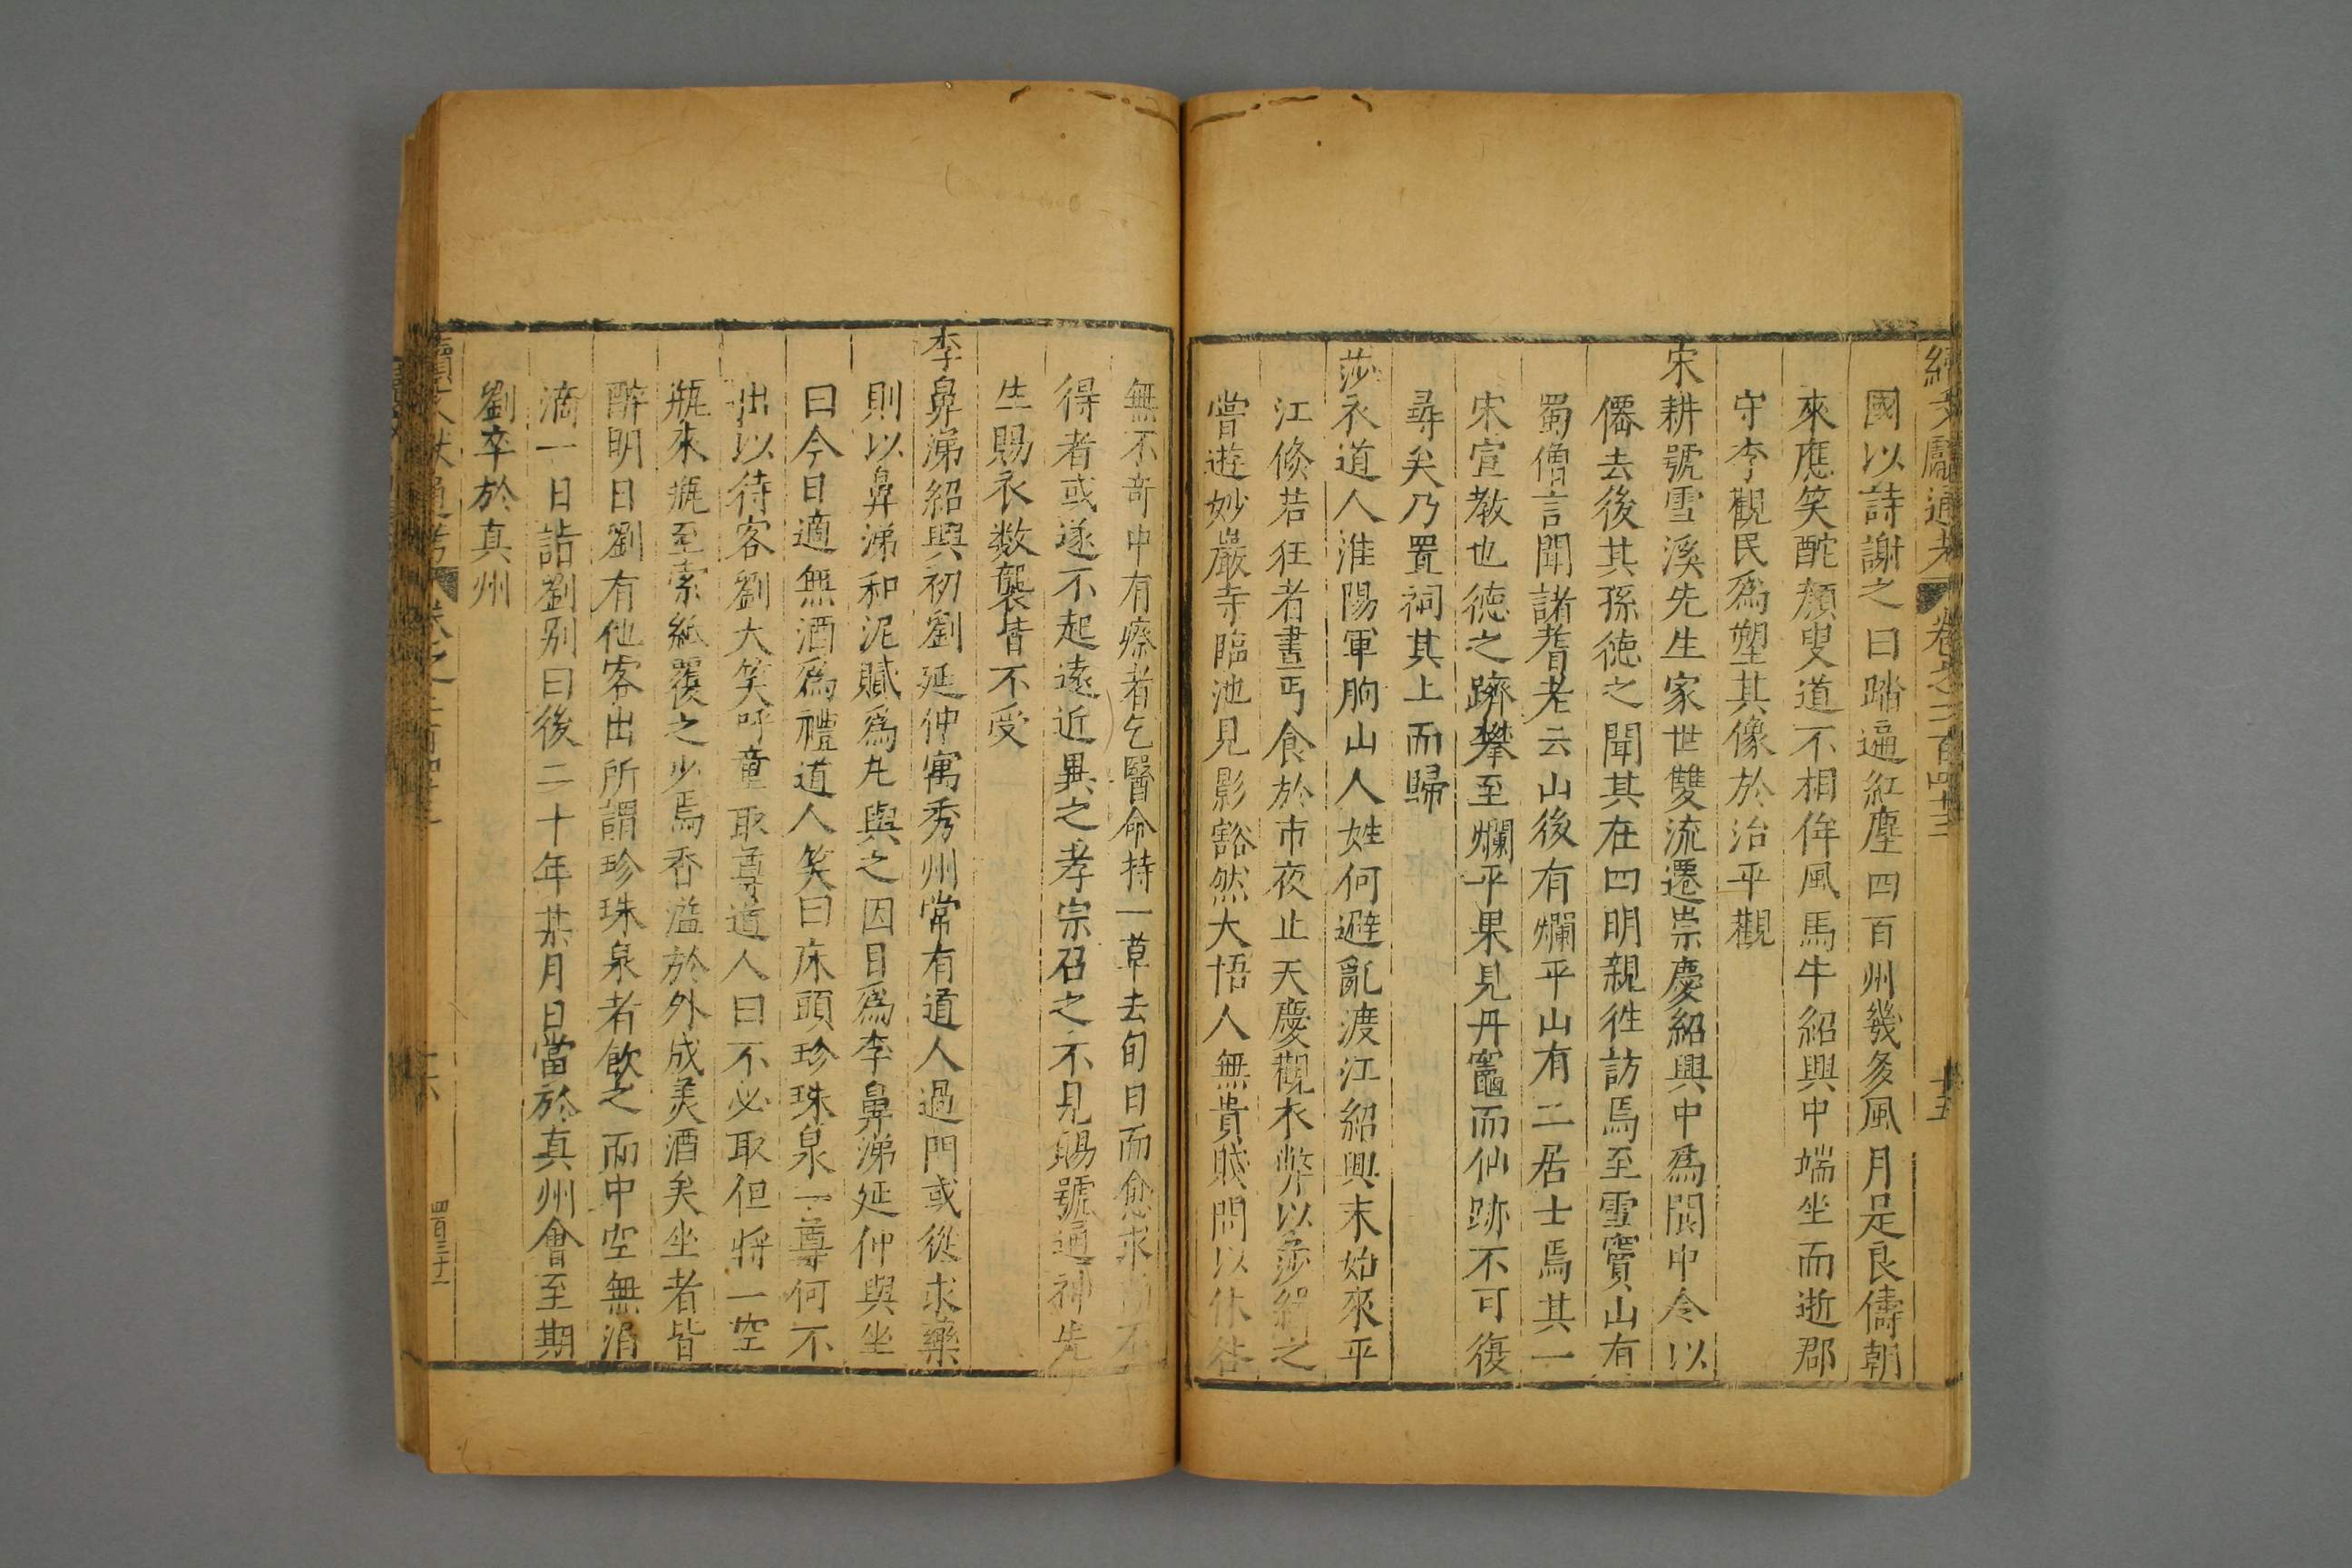 續文獻通考 卷之二百四十三 十五
國以詩謝之曰踏遍紅塵四百州幾多風月是良儔朝
來應笑酡顏叟道不相侔風馬牛紹興中端坐而逝郡
守李觀民爲塑其像於治平觀
宋耕號雪溪先生家世雙流遷崇慶紹興中爲閬中令以
僊去後其孫德之聞其在四明親徃訪焉至雪竇山有
蜀僧言聞諸耆老云山後有爛平山有二居士焉其一
宋宣教也德之躋攀至爛平果見丹竈而仙跡不可復
尋矣乃置祠其上而歸
莎衣道人淮陽軍朐山人姓何避亂渡江紹興末始來平
江倏若狂者晝丐食於市夜止天慶觀衣弊以莎緝之
嘗遊妙嚴寺臨池見影豁然大悟人無貴賤問以休咎
無不奇中有瘵者乞醫命持一草去旬日而愈求而不
得者或遂不起遠近異之孝宗召之不見賜號通神先
生賜衣数襲皆不受
李鼻涕紹興初劉延仲寓秀州常有道人過門或從求藥
則以鼻涕和泥膩爲丸與之因目爲李鼻涕延仲與坐
曰今日適無酒爲禮道人笑曰床頭珍珠泉一尊何不
出以待客劉大笑呼童取尊道人曰不必取但將一空
瓶來瓶至索紙覆之少焉香溢於外成美酒矣坐者皆
醉明日劉有他客出所謂珍珠泉者飲之而中空無涓
滴一日詣劉別曰後二十年某月日當於真州會至期
劉卒於真州
續文獻通考 卷之二百四十三 十六 四百三十一